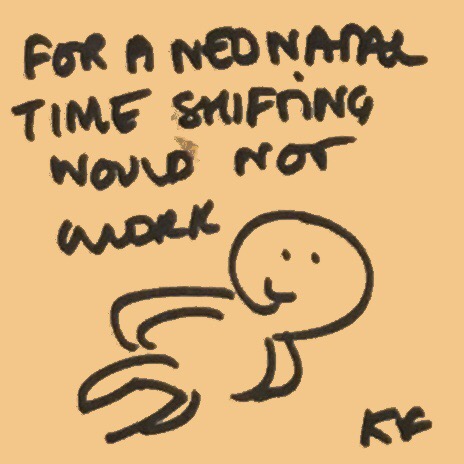 FOR A NEONATAL
TIME SHIFTING
WOULD NOT
WORK